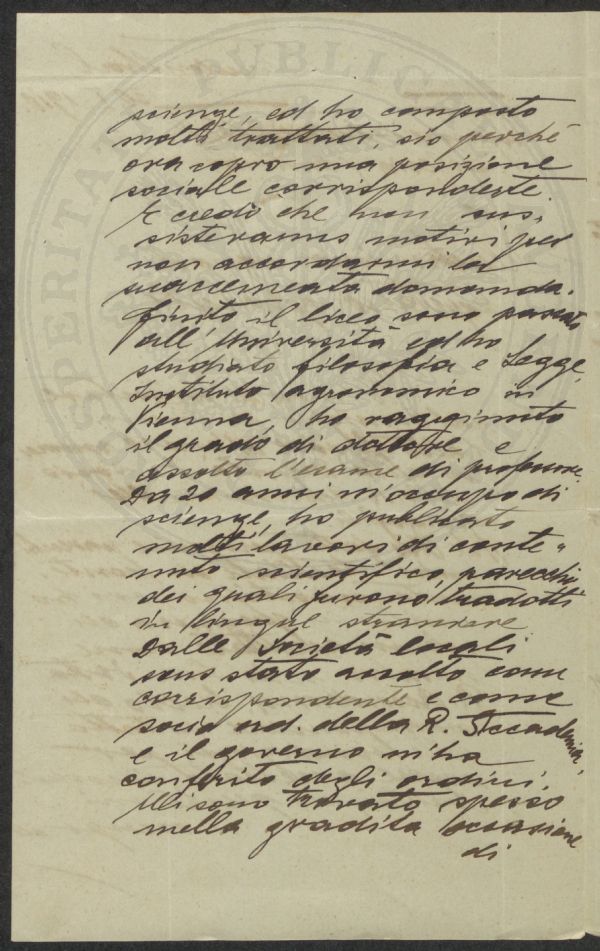 scienze, ed ho composto
molti trattati, sio perché
ora copro una posizione
sociale corrispondente
E credo che non sus-
sisteranno motivi per
non accordarmi la
suaccennata domanda.
finito il liceo sono passato
all' Università ed ho
studiato filosofia e Legge,
Instituto agronomico in
Vienna, ho raggiunto
il grado di dottore e
assolto l'esame di professore.
Da 20 anni m'occupo di
scienze, ho publicato
molti lavori di conte„
nuto scientifico, parecchi
dei quali furono tradotti
in lingue straniere
Dalle Società locali
sono stato accolto come
corrispondente e come
socio ord. della R. Accademia,
e il governo m'ha
conferito degli ordini.
Mi sono trovato spesso
nella gradita occasione
di
PVBLIC